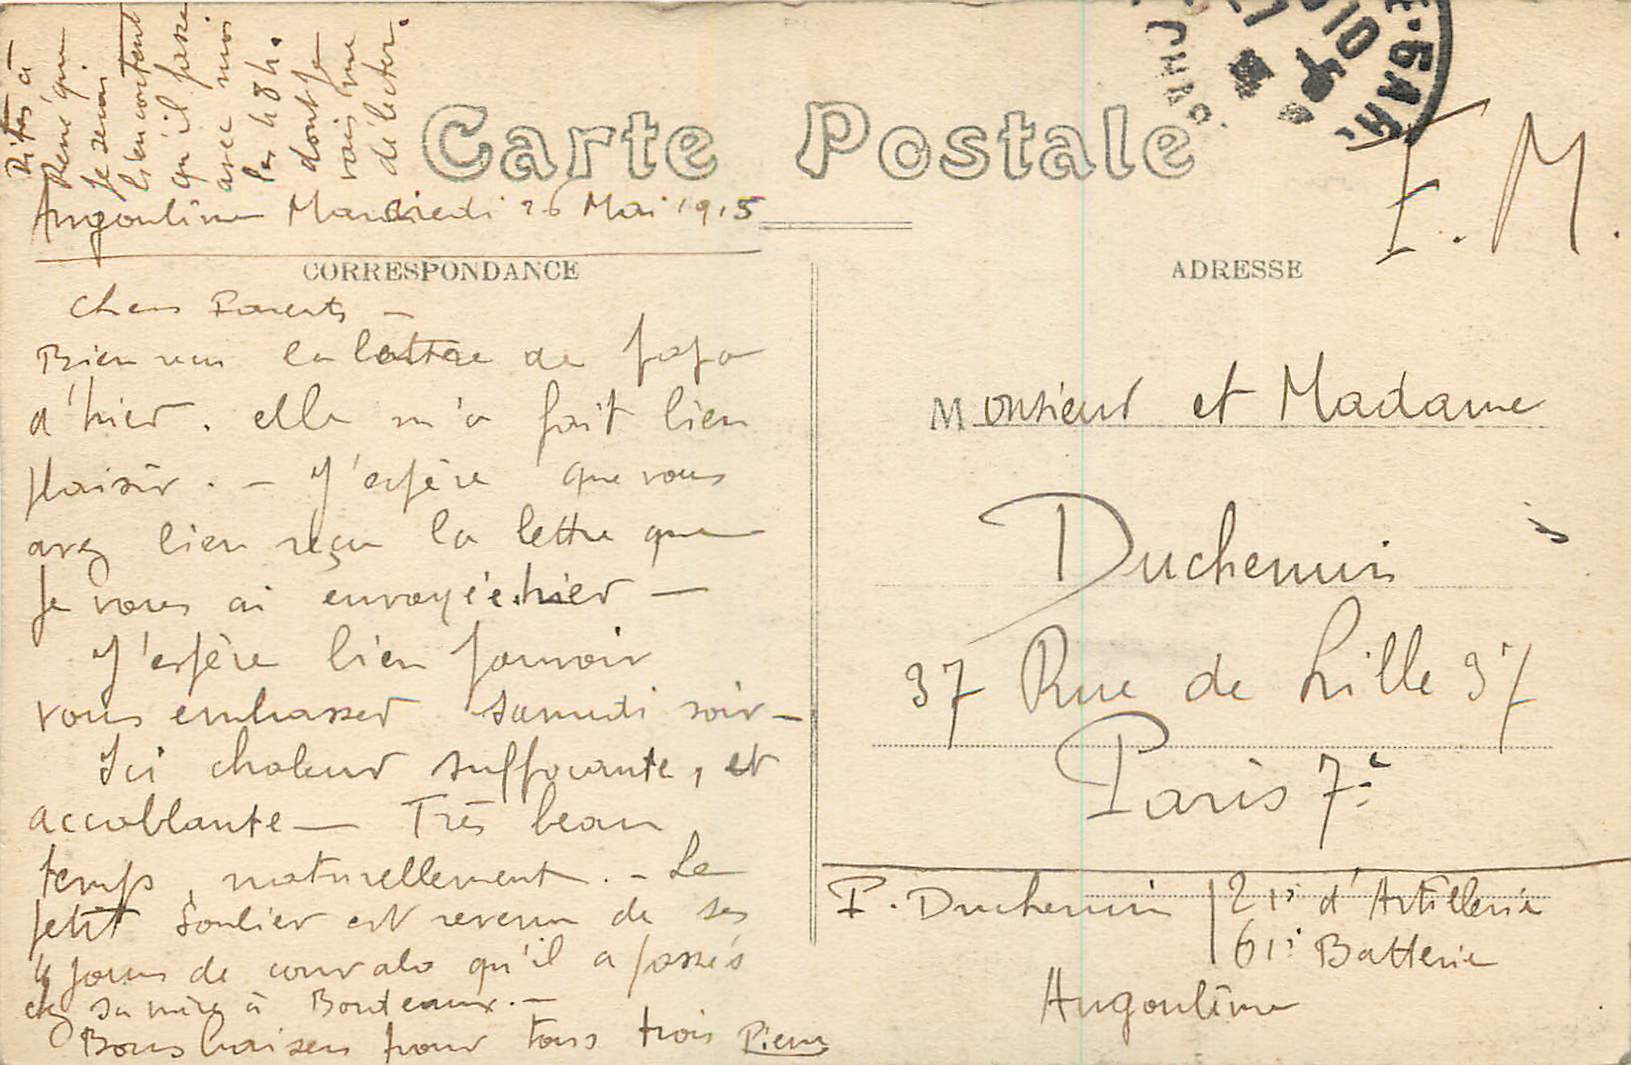 Dites à
René que
je serai
bien content
qu'il passe
avec moi
les 48 h.
dont je
vais me
délecter.
Carte Postale
Angoulême Mercredi 26 Mai 1915
CORRESPONDANCE
Chers Parents —
Bien reçu la lettre de papa
d'hier. elle m'a fait bien
plaisir. — J'espère que vous
avez bien reçu la lettre que
je vous ai envoyée hier —
J'espère bien pouvoir
vous embrasser samedi soir —
Ici chaleur suffocante, et
accablante — Très beau
temps, naturellement. — Le
petit Soulier est revenu de ses
4 jours de convalo qu'il a passés
chez sa mère à Bordeaux. —
Bons baisers pour tous trois Pierre
F. M.
ADRESSE
Monsieur et Madame
Duchemin
37 Rue de Lille 37
Paris 7e
P. Duchemin 21e d'Artillerie
61e Batterie
Angoulême